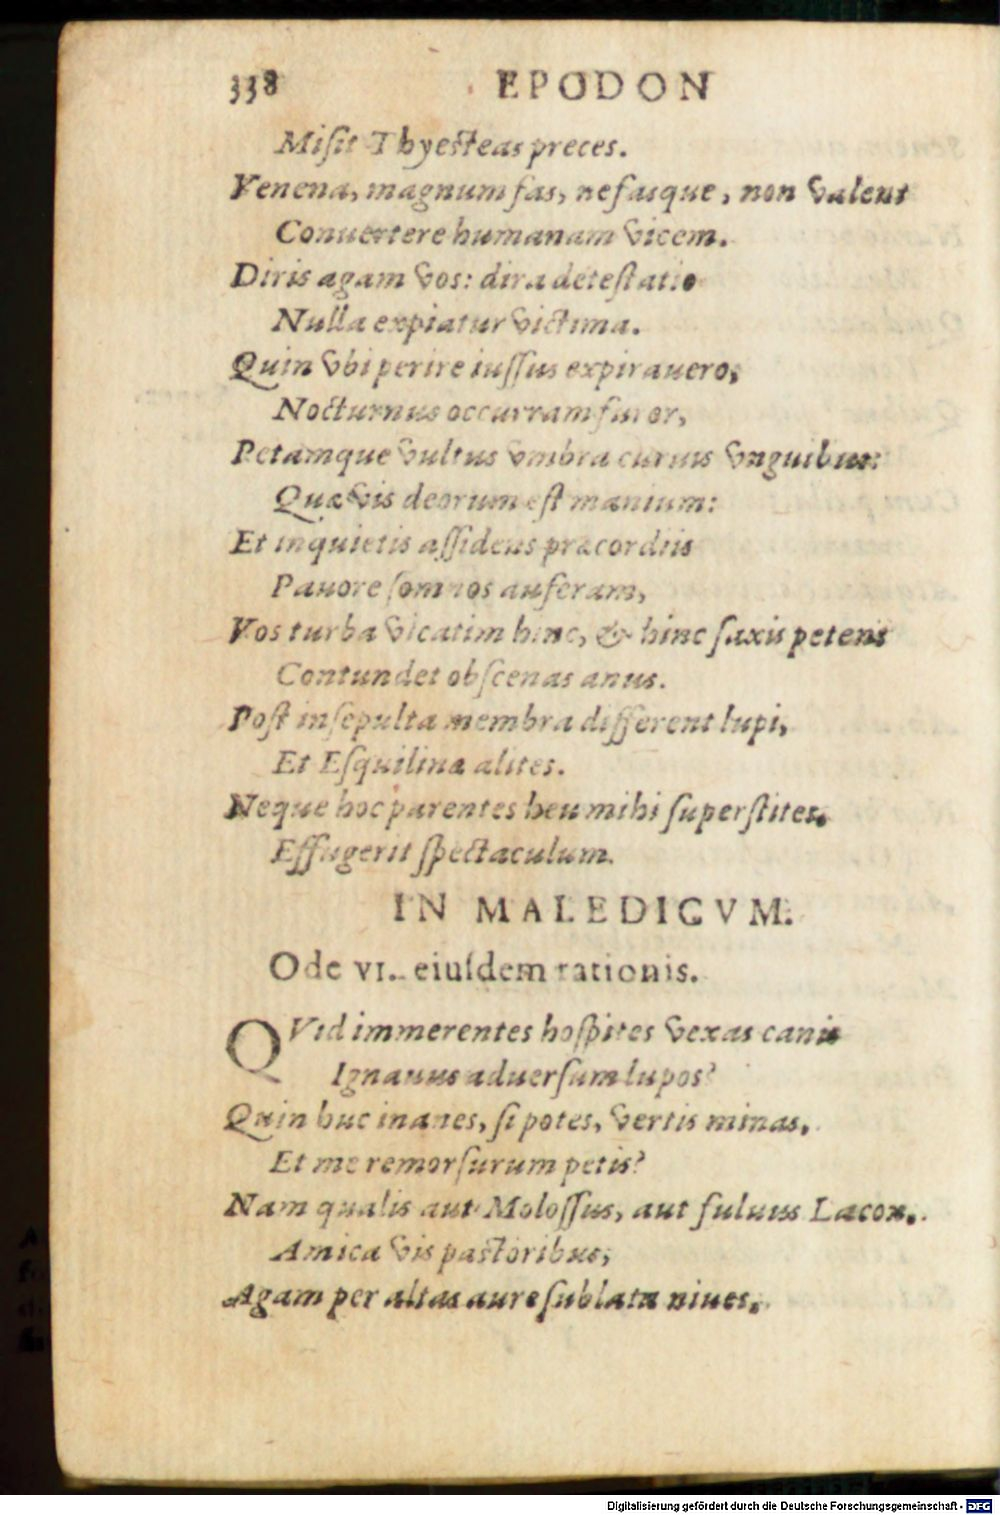 338 EPODON
Misit Thyesteas preces.
Venena, magnum fas, nefasque, non valent
Conuertere humanam vicem.
Diris agam vos: dira detestatio
Nulla expiatur victima.
Quin vbi perire iussus expirauero,
Nocturnus occurram furor,
Petamque vultus vmbra curuis vnguibus:
Quæ vis deorum est manium:
Et inquietis assidens præcordiis
Pauore somnos auferam,
Vos turba vicatim hinc, & hinc saxis petens
Contundet obscenas anus.
Post insepulta membra different lupi,
Et Esquilinæ alites.
Neque hoc parentes heu mihi superstites,
Effugerit spectaculum.
IN MALEDICVM.
Ode VI. eiusdem rationis.
QVid immerentes hospites vexas canis
Ignauus aduersum lupos?
Quin huc inanes, si potes, vertis minas,
Et me remorsurum petis?
Nam qualis aut Molossus, aut fuluus Lacon,
Amica vis pastoribus,
Agam per altas aure sublata niues,
Digitalisierung gefördert durch die Deutsche Forschungsgemeinschaft - DFG